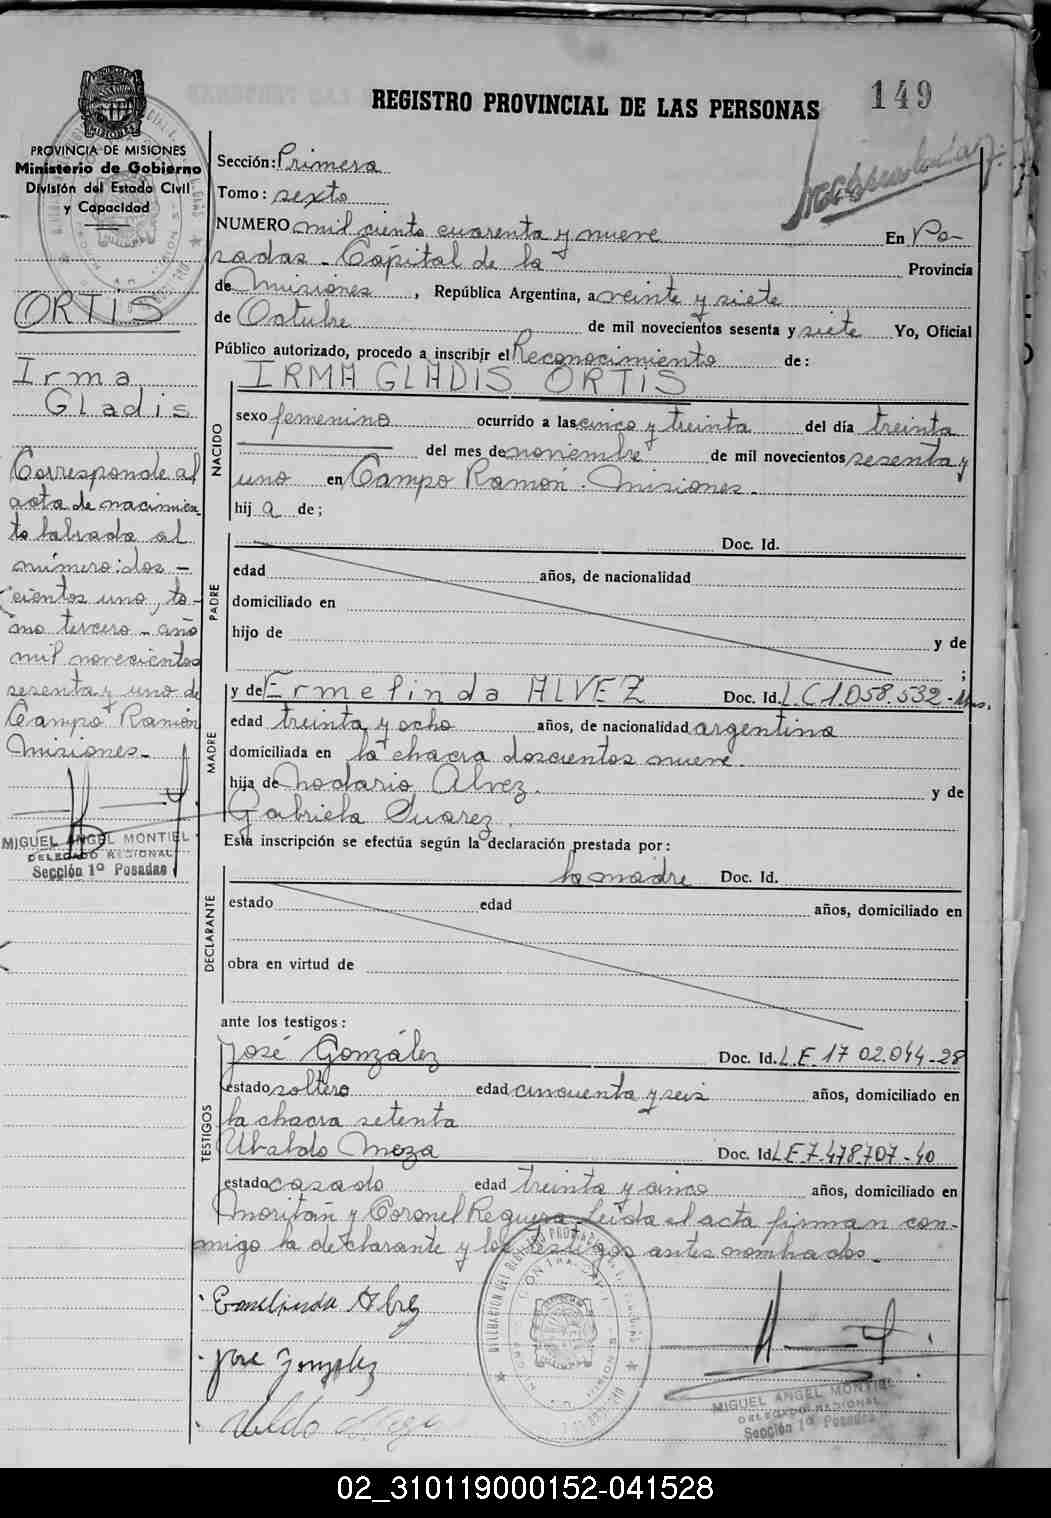 149
REGISTRO PROVINCIAL DE LAS PERSONAS
PROVINCIA DE MISIONES
Ministerio de Gobierno
División del Estado Civil
y Capacidad
ORTIS
Irma
Gladis
Corresponde al
acta de nacimien-
to labrada al
número: dos -
cientos uno, to-
mo tercero - año
mil novecientos
sesenta y uno de
Campo Ramón
Misiones -
MIGUEL ANGEL MONTIEL
DELEGADO REGIONAL
Sección 1º Posadas
Sección: Primera
Tomo: sexto
NUMERO mil ciento cuarenta y nueve En Po-
sadas - Capital de la Provincia
de Misiones, República Argentina, a veinte y siete
de Octubre de mil novecientos sesenta y siete Yo, Oficial
Público autorizado, procedo a inscribir el Reconocimiento de:
IRMA GLADIS ORTIS
NACIDO
sexo femenino ocurrido a las cinco y treinta del día treinta
del mes de noviembre de mil novecientos sesenta y
uno en Campo Ramón - Misiones -
hija de;
PADRE
Doc. Id.
edad años, de nacionalidad
domiciliado en
hijo de y de
;
MADRE
y de Ermelinda ALVEZ Doc. Id. L.C 1.058.532 - Mns.
edad treinta y ocho años, de nacionalidad argentina
domiciliada en la chacra doscientos nueve.
hija de Nodario Alvez. y de
Gabriela Suarez.
Esta inscripción se efectúa según la declaración prestada por:
DECLARANTE
la madre Doc. Id.
estado edad años, domiciliado en
obra en virtud de
ante los testigos:
TESTIGOS
José González Doc. Id. L.E. 17 02.044-28
estado soltero edad cincuenta y seis años, domiciliado en
la chacra setenta
Ubaldo Meza Doc. Id. L.E 7.478.707-40
estado casado edad treinta y cinco años, domiciliado en
Moritán y Coronel Reguera - Leída el acta firman con-
migo la declarante y los testigos antes nombrados -
Ermelinda Albez
Jose Gonzalez
MIGUEL ANGEL MONTIEL
DELEGADO REGIONAL
Sección 1º Posadas
02_310119000152-041528